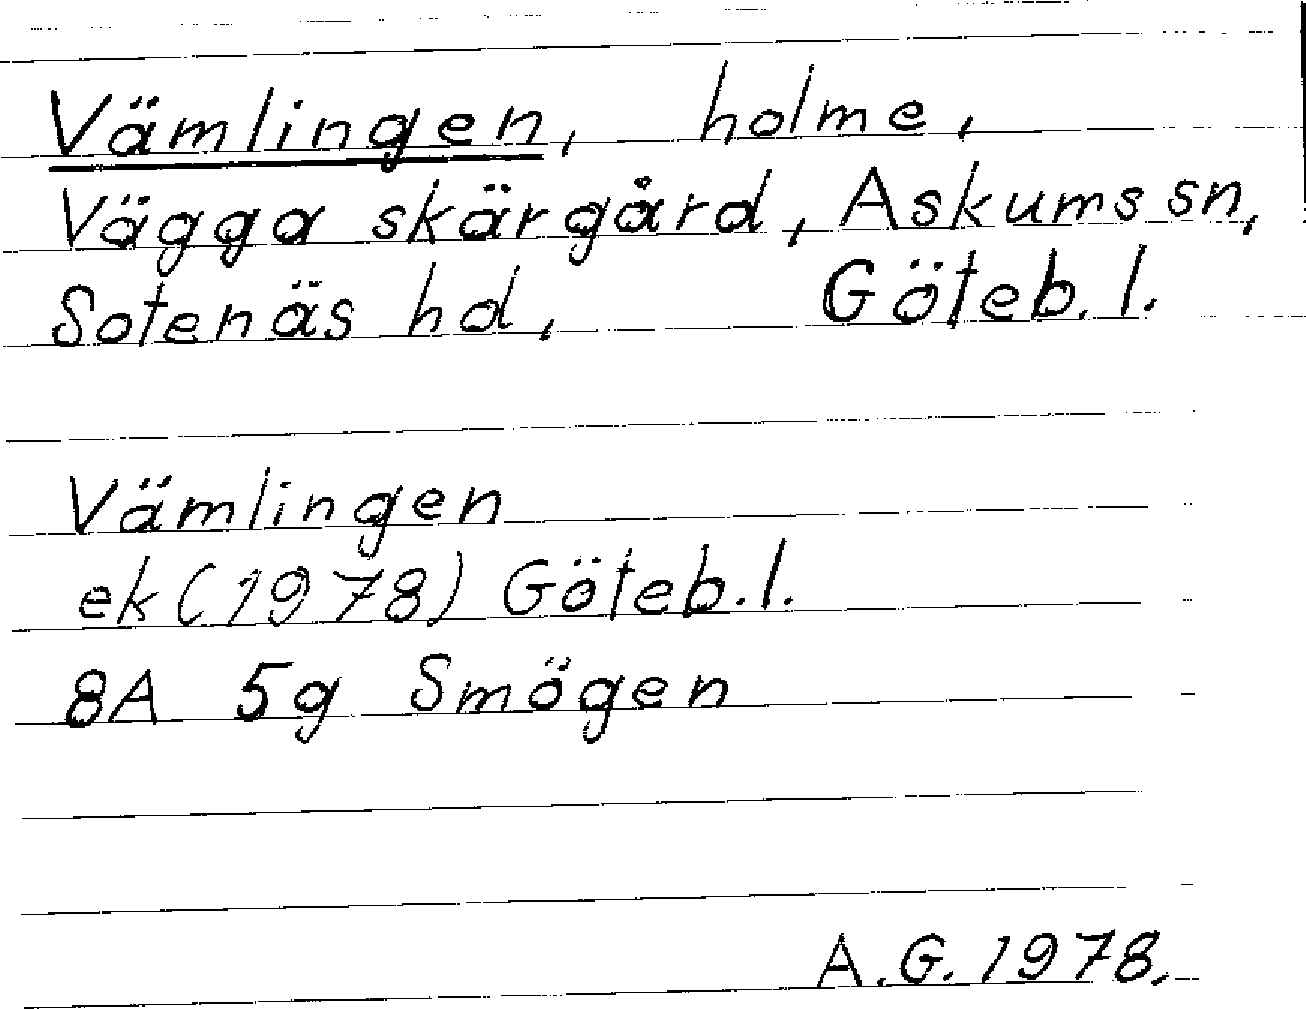 Vämlingen, holme,
Vägga skärgård, Askums sn,
Sotenäs hd, Göteb. l.
Vämlingen
ek (1978) Göteb. l.
8A 5g Smögen
A. G. 1978.